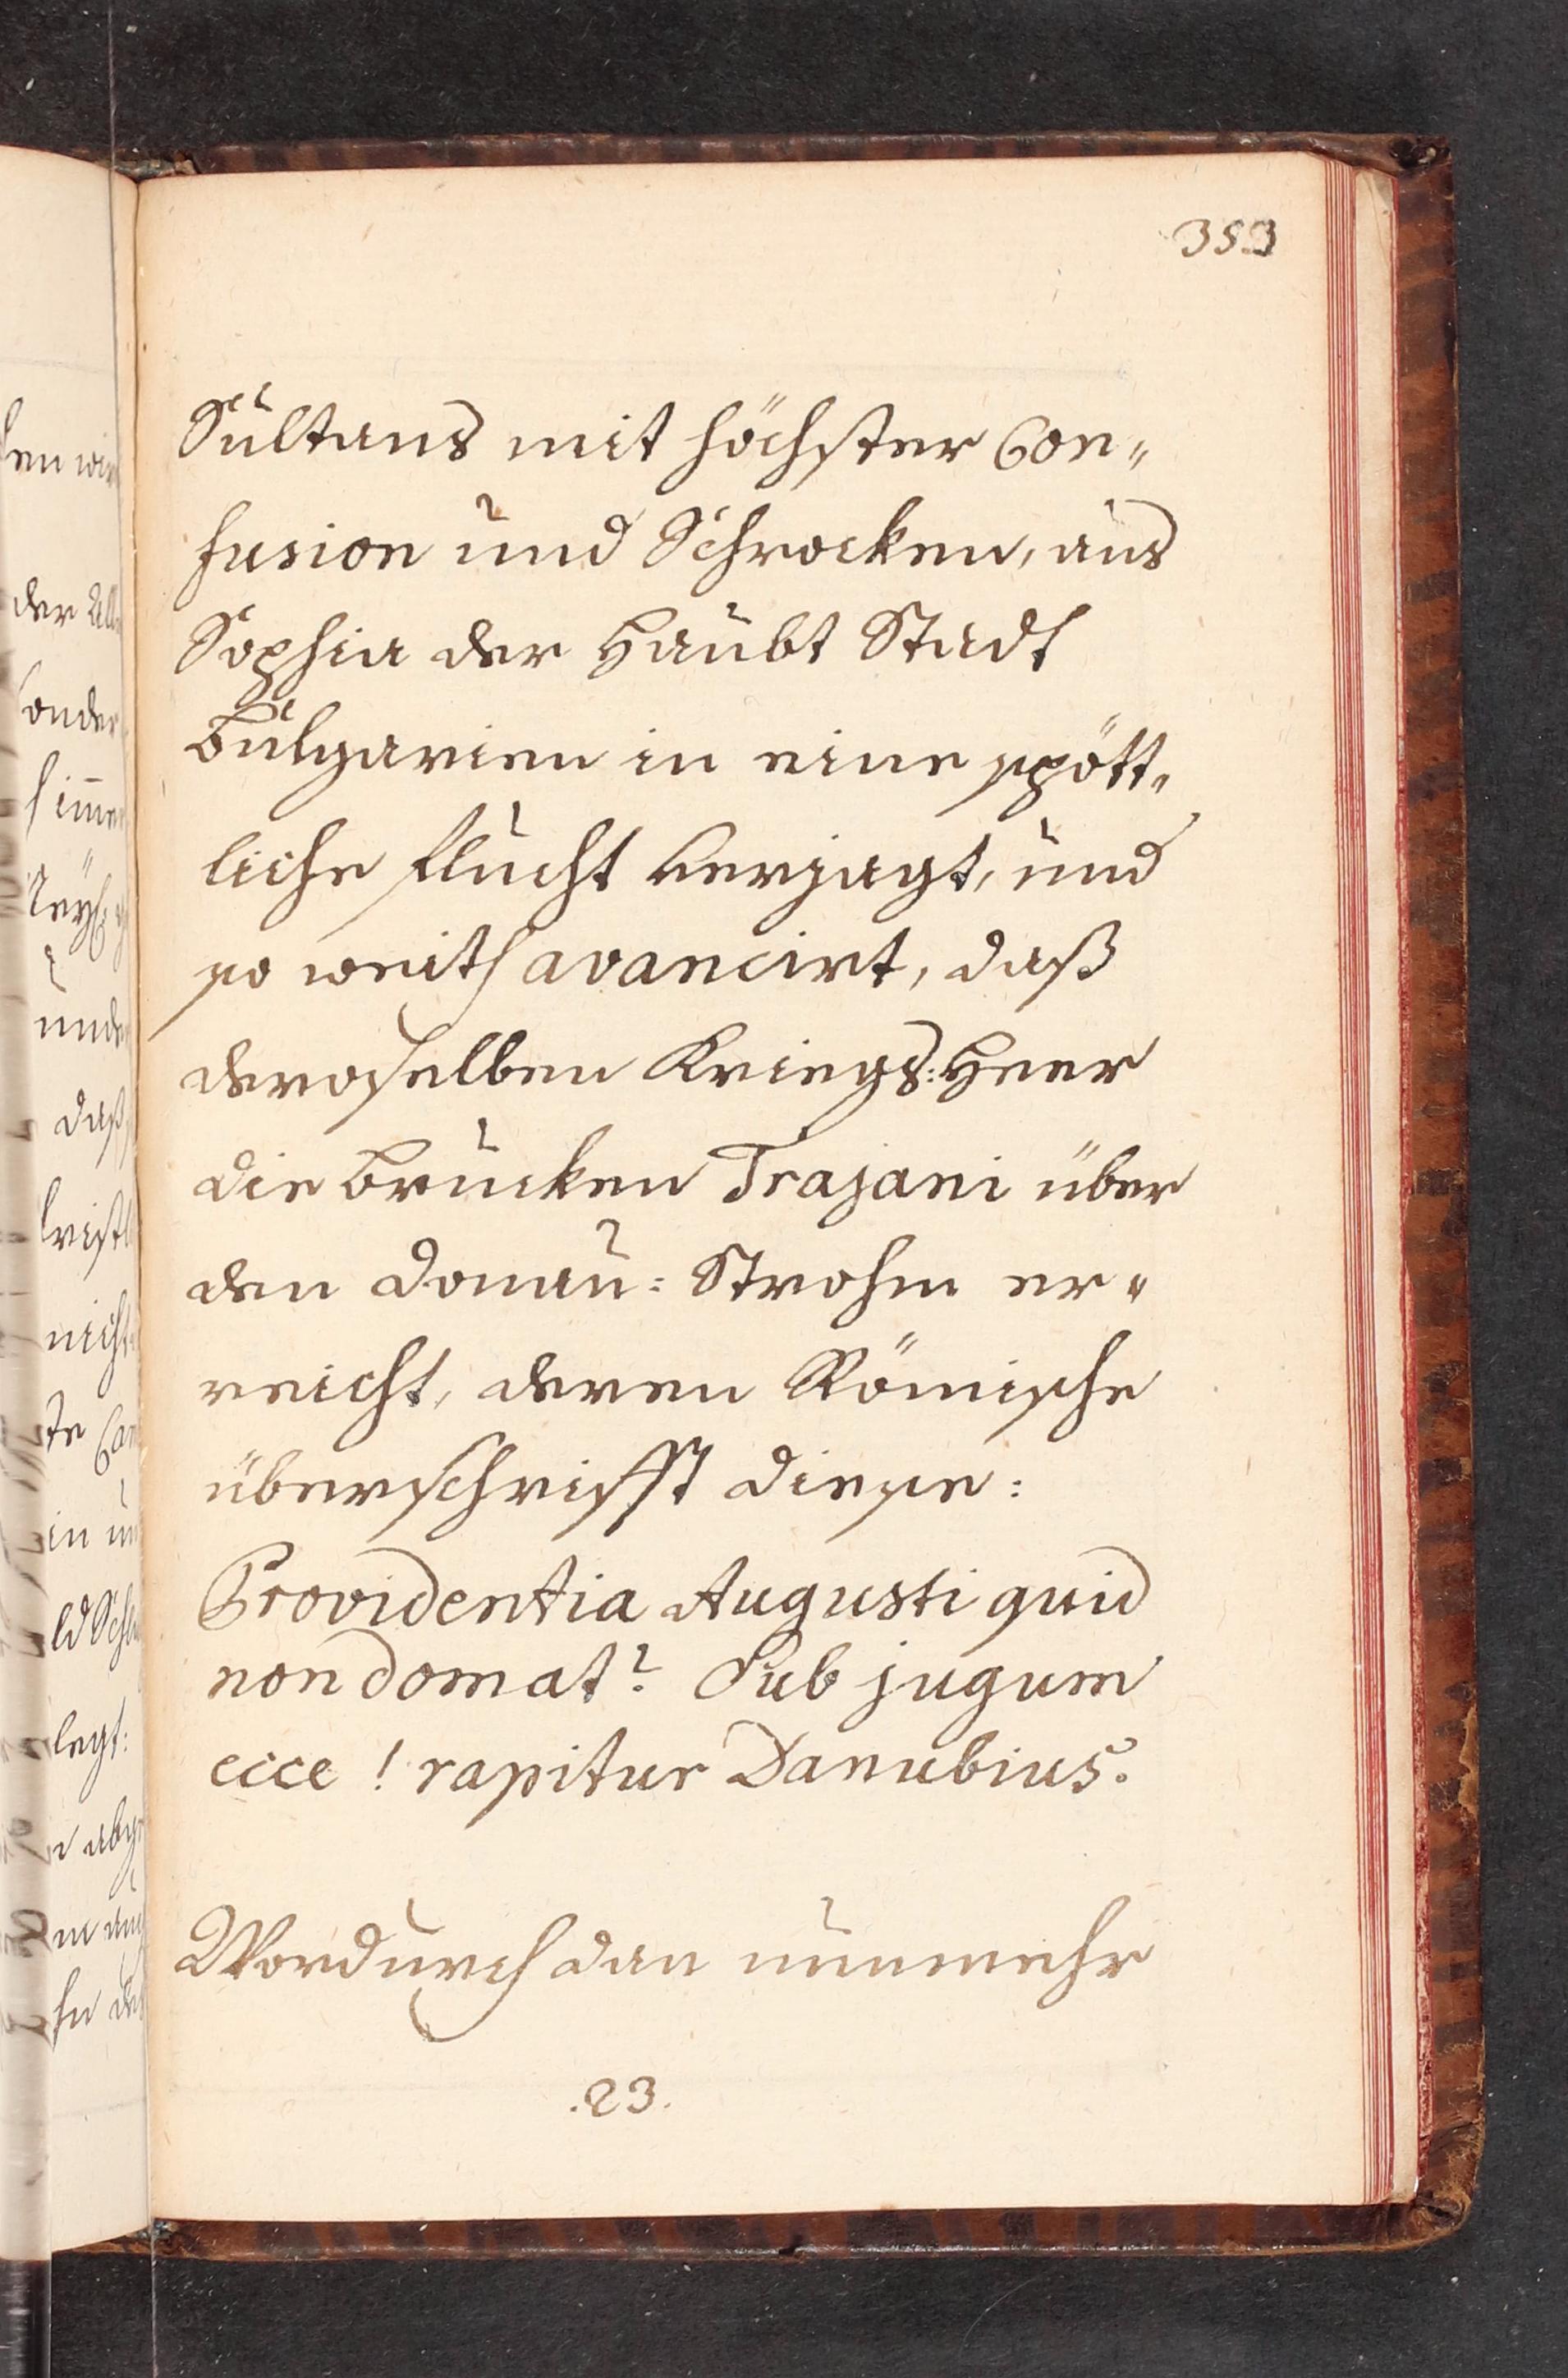 353
Sultans mit höchster Con„
fusion und Schrocken, aus
Sophia der Haubt Stadt
Bulgarien in eine spött„
liche flucht verjagt, und
so weith avancirt, daß
deroselben Kriegs: Heer
die Brucken Trajani über
den Donau: Strohm er„
reicht, deren Römische
überschrifft diese:
Providentia Augusti quid
non domat? Sub jugum
ecce ! rapitur Danubius.
Wordurch dan nunmehr
.23.